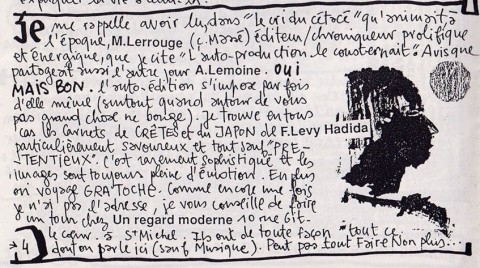 Je me rappelle avoir lu, dans "le cri du cétacé" qu'animait à
l'époque, M.Lerrouge (c. Massé) éditeur/chroniqueur prolifique
et énergique, que je cite "L'auto-production le consternait". Avis que
partageait aussi l'autre jour A.Lemoine. OUI
MAIS BON. l'auto-édition s'impose parfois
d'elle même (surtout quand autour de vous
pas grand chose ne bouge). Je trouve en tous
cas les carnets de CRÈTES et du JAPON de F.Levy Hadida
particulièrement savoureux et tout sauf "PRE-
TENTIEUX". C'est rarement sophistiqué et les
images sont toujours pleine d'émotion. En plus
on voyage GRATOCHE. Comme encore une fois
je n'ai pas l'adresse, je vous conseille de faire
un tour chez Un regard moderne 10 rue Gît-
le cœur. à St Michel. Ils ont de toute façon tout ce
dont on parle ici (sauf Musique). Peut pas tout Faire Non plus...
4